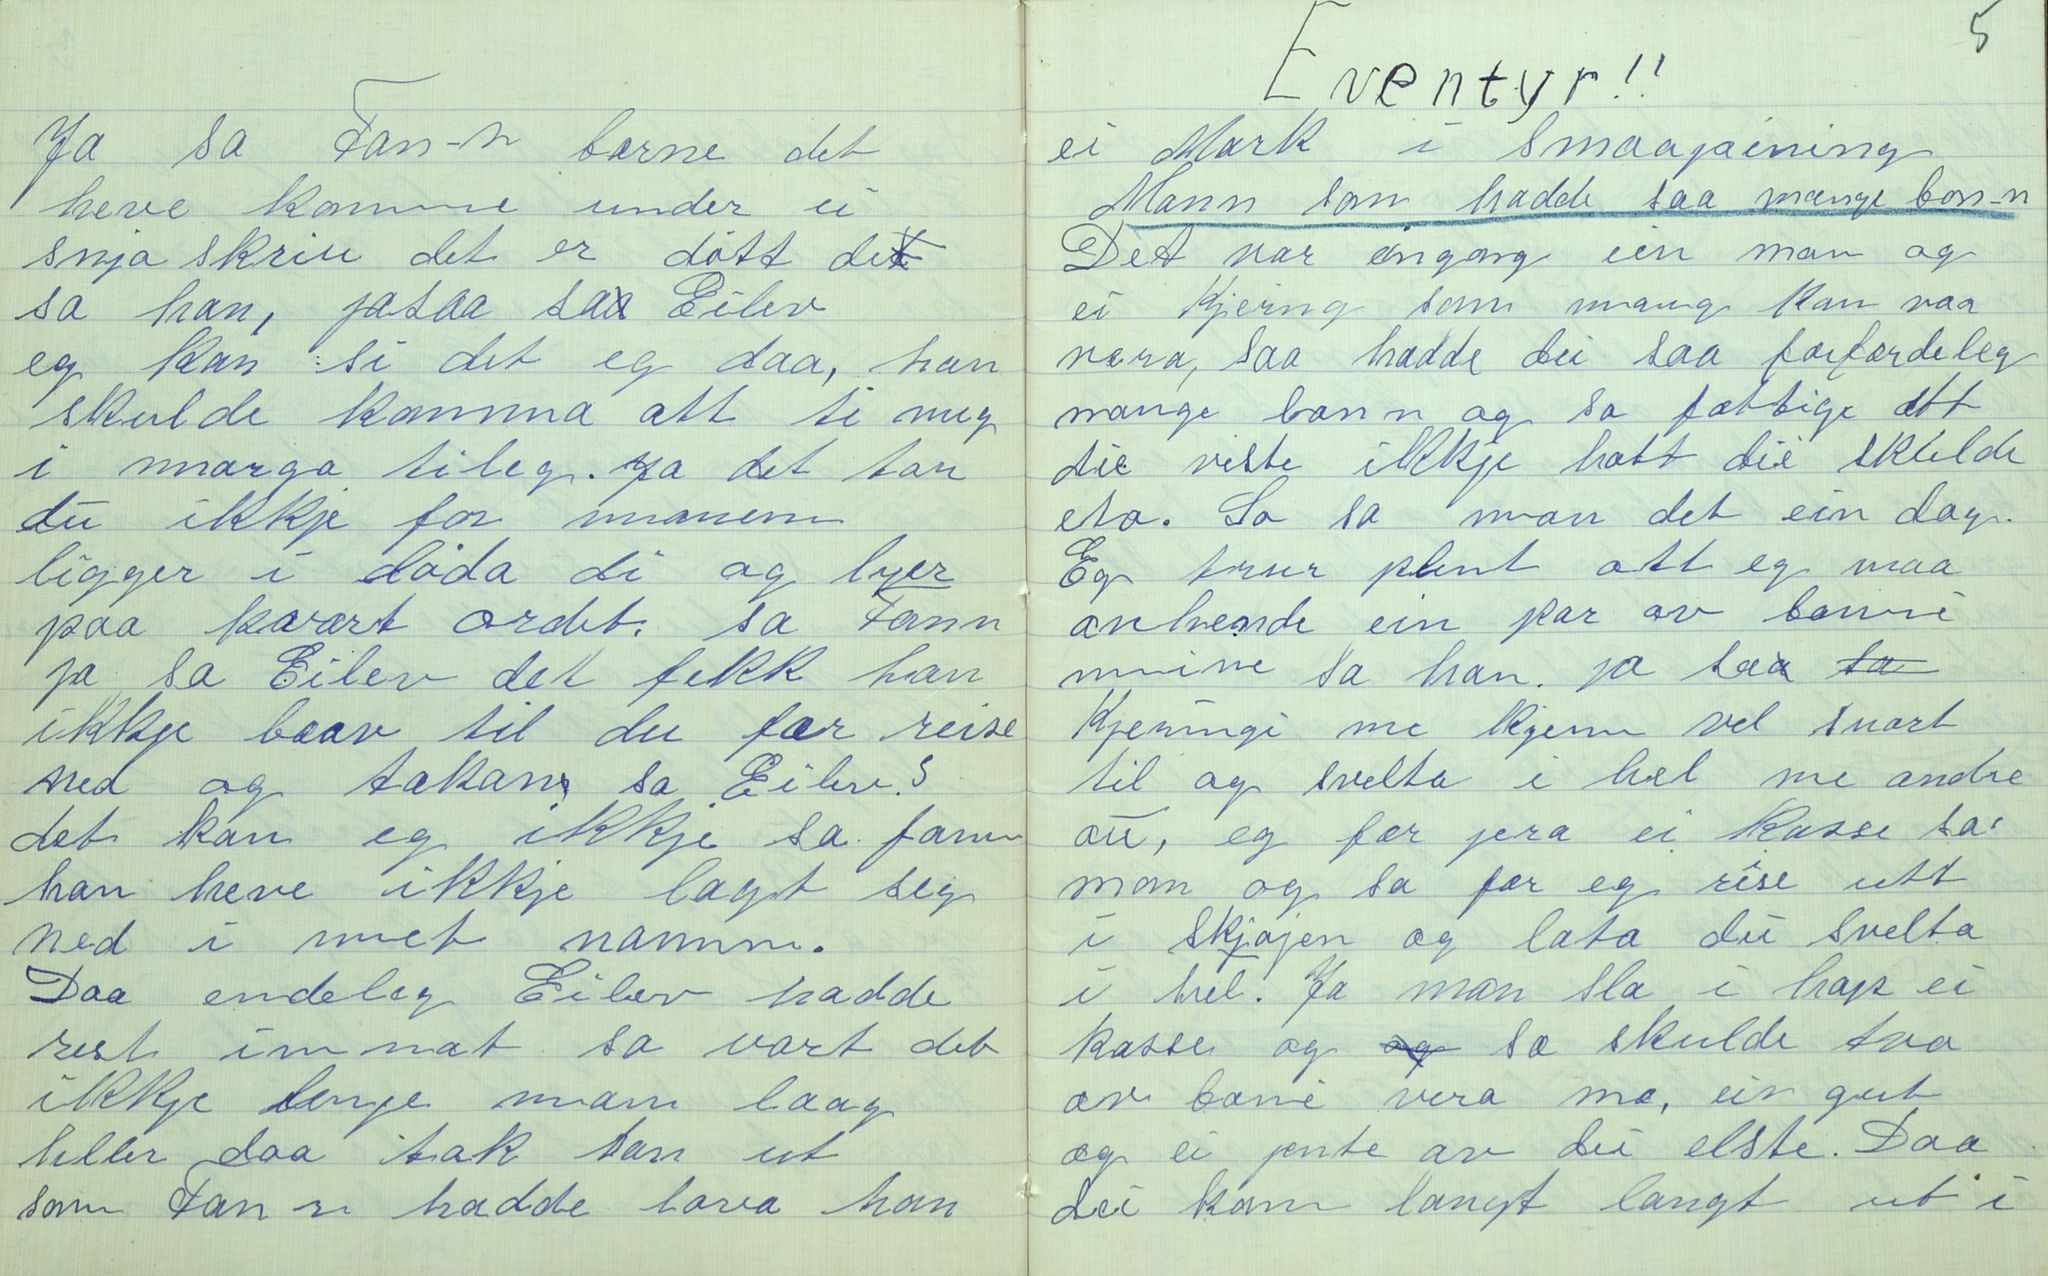 Ja sa Fan-n barne det
heve komme under ei
snjaskriu det er dött det
sa han, jasaa saa Eilev
eg kan si det eg daa, han
skulde komma att ti meg
i marga tileg. ja det tar
du ikkje for manen
ligger i döda di og lyer
paa kvart ordet. sa Fann
ja sa Eilev det fekk han
ikkje baar til du fær reise
ned og takan sa Eilev.
det kan eg ikkje sa fann
han heve ikkje lagt seg
ned i met namn.
Daa endeleg Eilev hadde
rest imnat sa vart det
ikkje lenge mann laag
heller daa tok han ut
som Fan n hadde lova han
5
Eventyr!!
ei Mark i Smaapeining
Mann som hadde saa mange bon-n
Det var eingang ein man og
ei Kjering som mang kan vaa
væra, saa hadde dei saa forfærdeleg
mange bonn og so fattige att
die viste ikkje hott die skulde
eta. So sa man det ein dag.
Eg trur plent att eg maa
avhende ein par av bonni
mine sa han. ja saa sa
Kjeringi me kjem vel snart
til og svelta i hæl me andre
ou, eg fær jera ei kasse sa
man og sa fær eg rise utt
i skjojen og lata dii svelta
i hel. Ja man sla i hop ei
kasse og og so skulde tvo
av bonni vera mæ, ein gut
og ei jente av dei elste. Daa
dei kom langt langt ut i